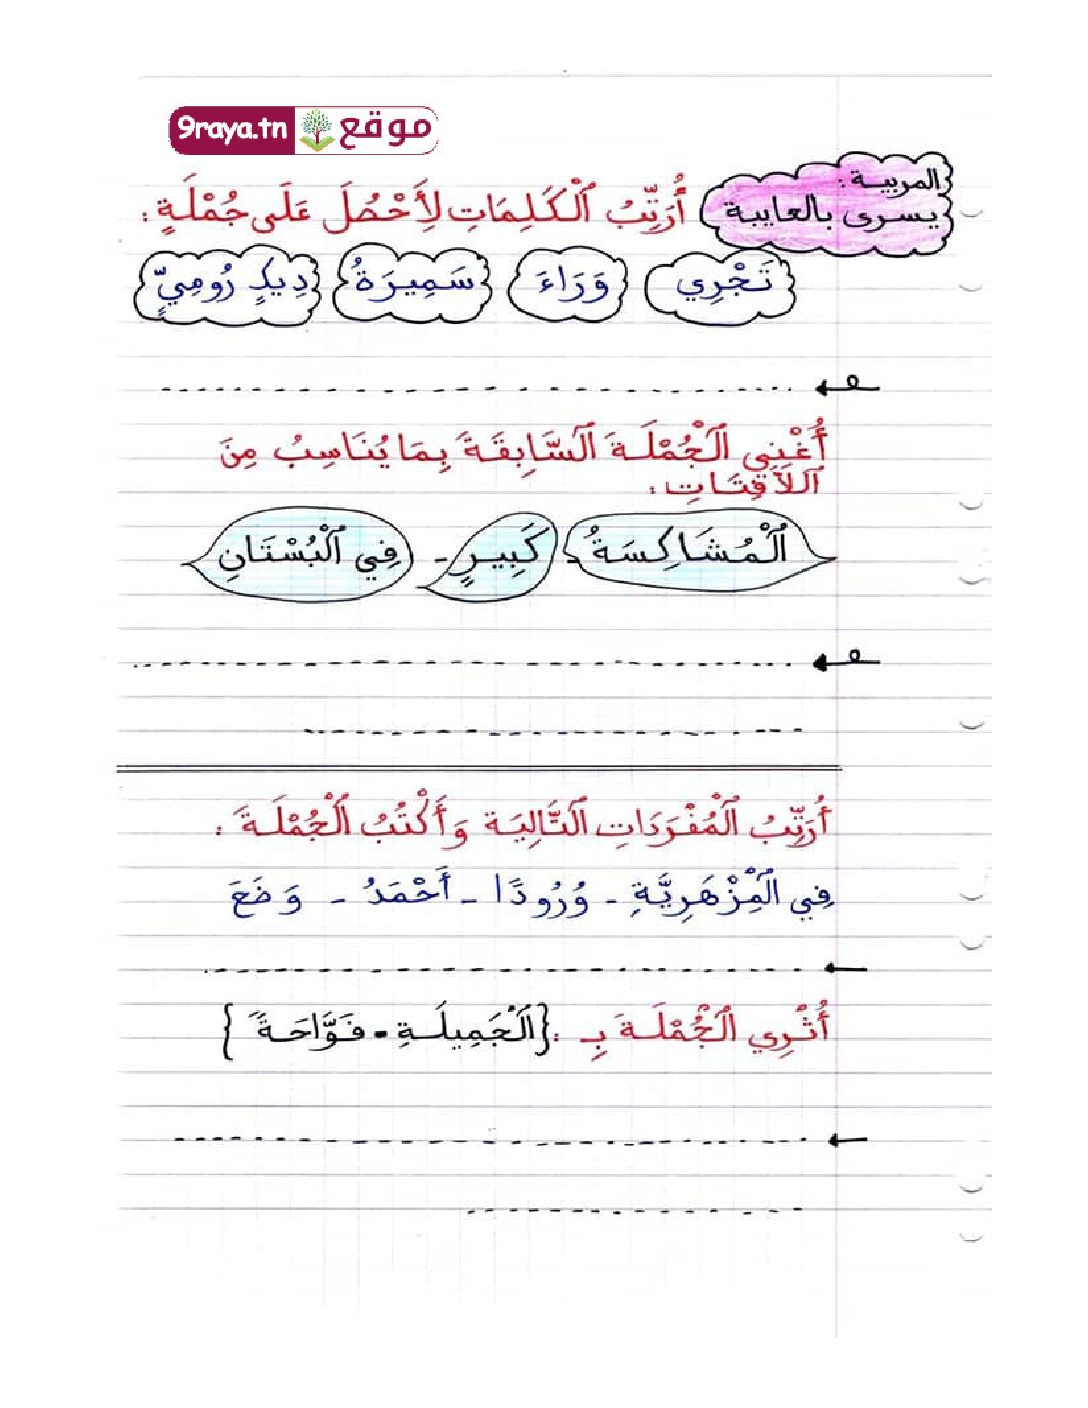 موقع 9raya.tn
المربية:
يسرى بالعايبة
أُرَتِّبُ ٱلْكَلِمَاتِ لِأَحْصُلَ عَلَى جُمْلَةٍ :
تَجْرِي وَرَاءَ سَمِيرَةُ دِيكٍ رُومِيٍّ
أُغْنِي ٱلْجُمْلَةَ ٱلسَّابِقَةَ بِمَا يُنَاسِبُ مِنَ
ٱللَّافِتَاتِ :
ٱلْمُشَاكِسَةُ - كَبِيرٍ - فِي ٱلْبُسْتَانِ
أُرَتِّبُ ٱلْمُفْرَدَاتِ ٱلتَّالِيَةَ وَأَكْتُبُ ٱلْجُمْلَةَ :
فِي ٱلْمِزْهَرِيَّةِ - وُرُودًا - أَحْمَدُ - وَضَعَ
أُثْرِي ٱلْجُمْلَةَ بِـ : {ٱلْجَمِيلَةِ - فَوَّاحَةً }